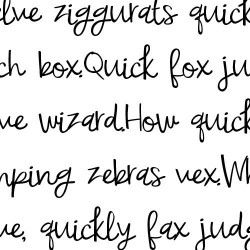 elve ziggurats quick
ch box.Quick fox ju
ve wizard.How quick
mping zebras vex.Wh
ve, quickly fax jud